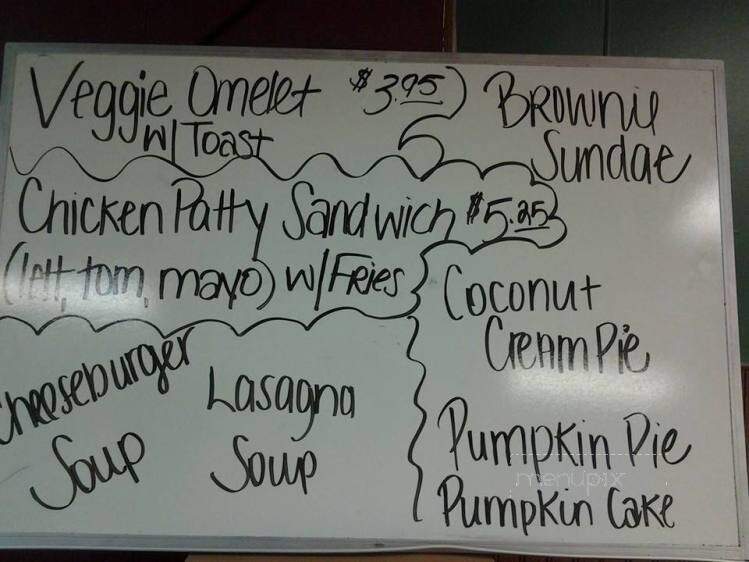 Veggie Omelet $3.95
w/ Toast
Chicken Patty Sandwich $5.25
(lett, tom, mayo) w/ Fries
Cheeseburger
Soup
Lasagna
Soup
Brownie
Sundae
Coconut
Cream Pie
Pumpkin Pie
Pumpkin Cake
menupix